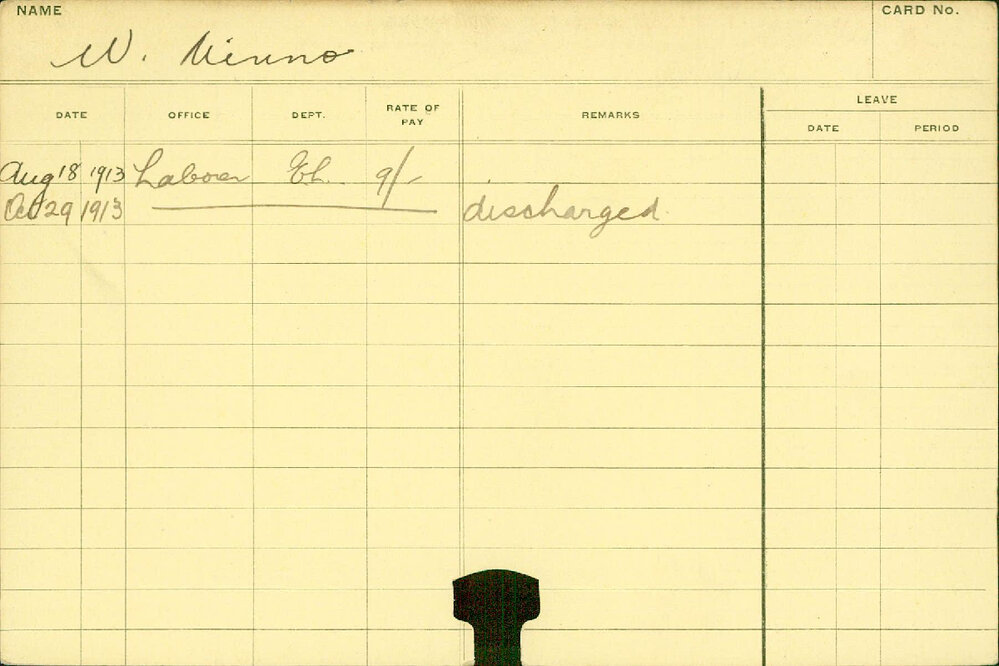 NAME
CARD No.
W. Nunno
DATE OFFICE DEPT. RATE OF PAY REMARKS LEAVE
DATE PERIOD
Aug 18 1913 Laborer El. 9/-
Oct 29 1913 discharged